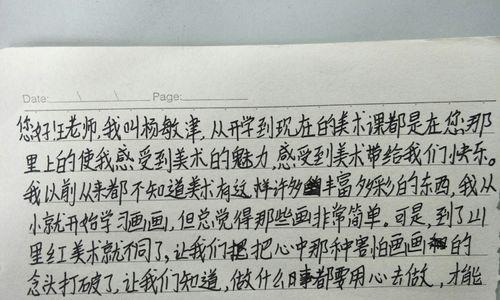 Date: Page:
您好!汪老师,我叫杨敏津,从开学到现在的美术课都是在您那
里上的使我感受到美术的魅力,感受到美术带给我们快乐。
我以前从来都不知道美术有这样许多丰富多彩的东西,我从
小就开始学习画画,但总觉得那些画非常简单。可是,到了山
里红美术就不同了,让我们把心中那种害怕画画的
念头打破了,让我们知道,做什么事都要用心去做,才能